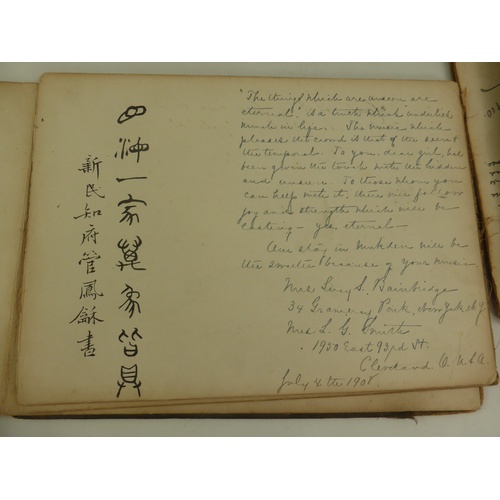 四海一家萬象皆具
新民知府管鳳龢書
"The things which are unseen are
eternal," is a truth which underlies
much in life. The music which
pleases the crowd is that of the
the temporal. To you, dear girl, has
been given the touch with the hidden
and unseen. To those whom you
can help with it, there will follow
joy and strength which will be
lasting – yes eternal.
Our stay in Mukden will be
the sweeter because of your music.
Mrs Lucy S. Bainbridge
34 Gramercy Park, New York N.Y.
Mrs L. G. Smith
1920 East 93rd St.
Cleveland O. U.S.A.
July 4th 1908.